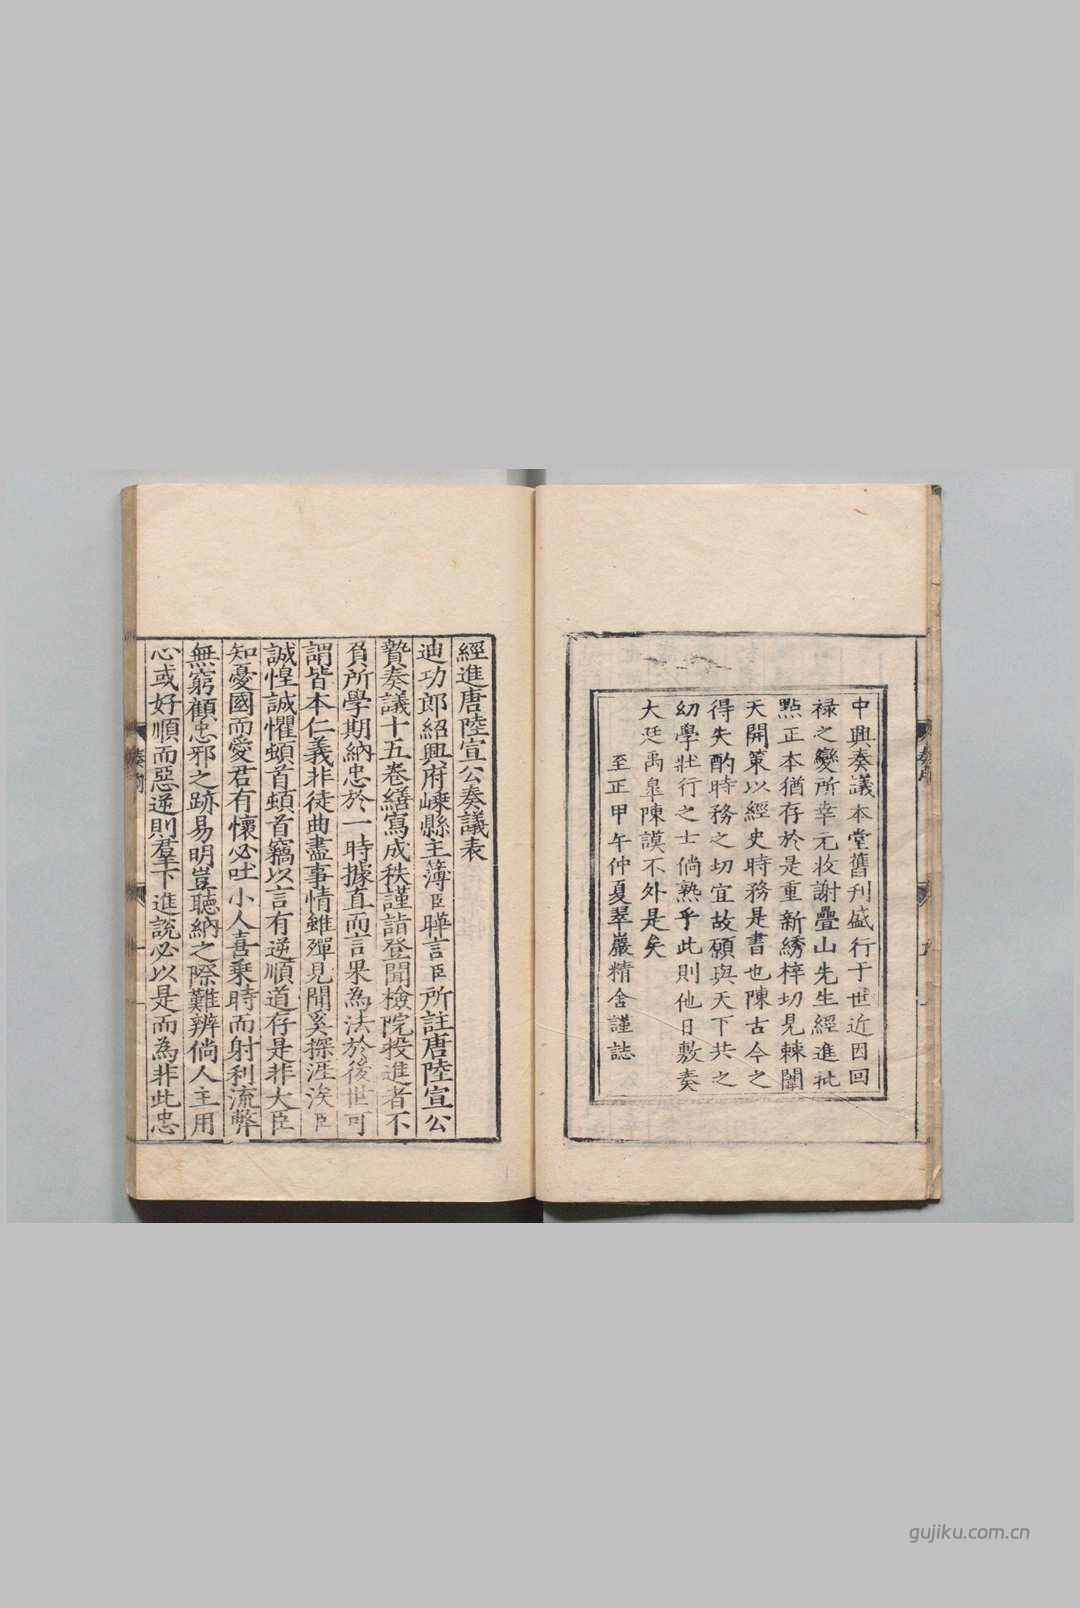 中興奏議本堂舊刋盛行于世近因回
禄之變所幸元收謝疊山先生經進批
㸃正本猶存於是重新綉梓切見棘闈
天開策以經史時務是書也陳古今之
得失酌時務之切宜故願與天下共之
幼學壯行之士倘熟乎此則他日敷奏
大廷禹臯陳謨不外是矣
至正甲午仲夏翠巖精舍謹誌
經進唐陸宣公奏議表
迪功郎紹興府嵊縣主簿臣曄言臣所註唐陸宣公
贄奏議十五卷繕寫成秩謹詣登聞檢院投進者不
負所學期納忠於一時據直而言果為法於後世可
謂皆本仁義非徒曲盡事情雖殫見聞奚探涯涘臣
誠惶誠懼頓首頓首竊以言有逆順道存是非大臣
知憂國而愛君有懷必吐小人喜乘時而射利流弊
無窮顧忠邪之跡易明豈聽納之際難辨倘人主用
心或好順而惡逆則羣下進說必以是而為非此忠
gujiku.com.cn